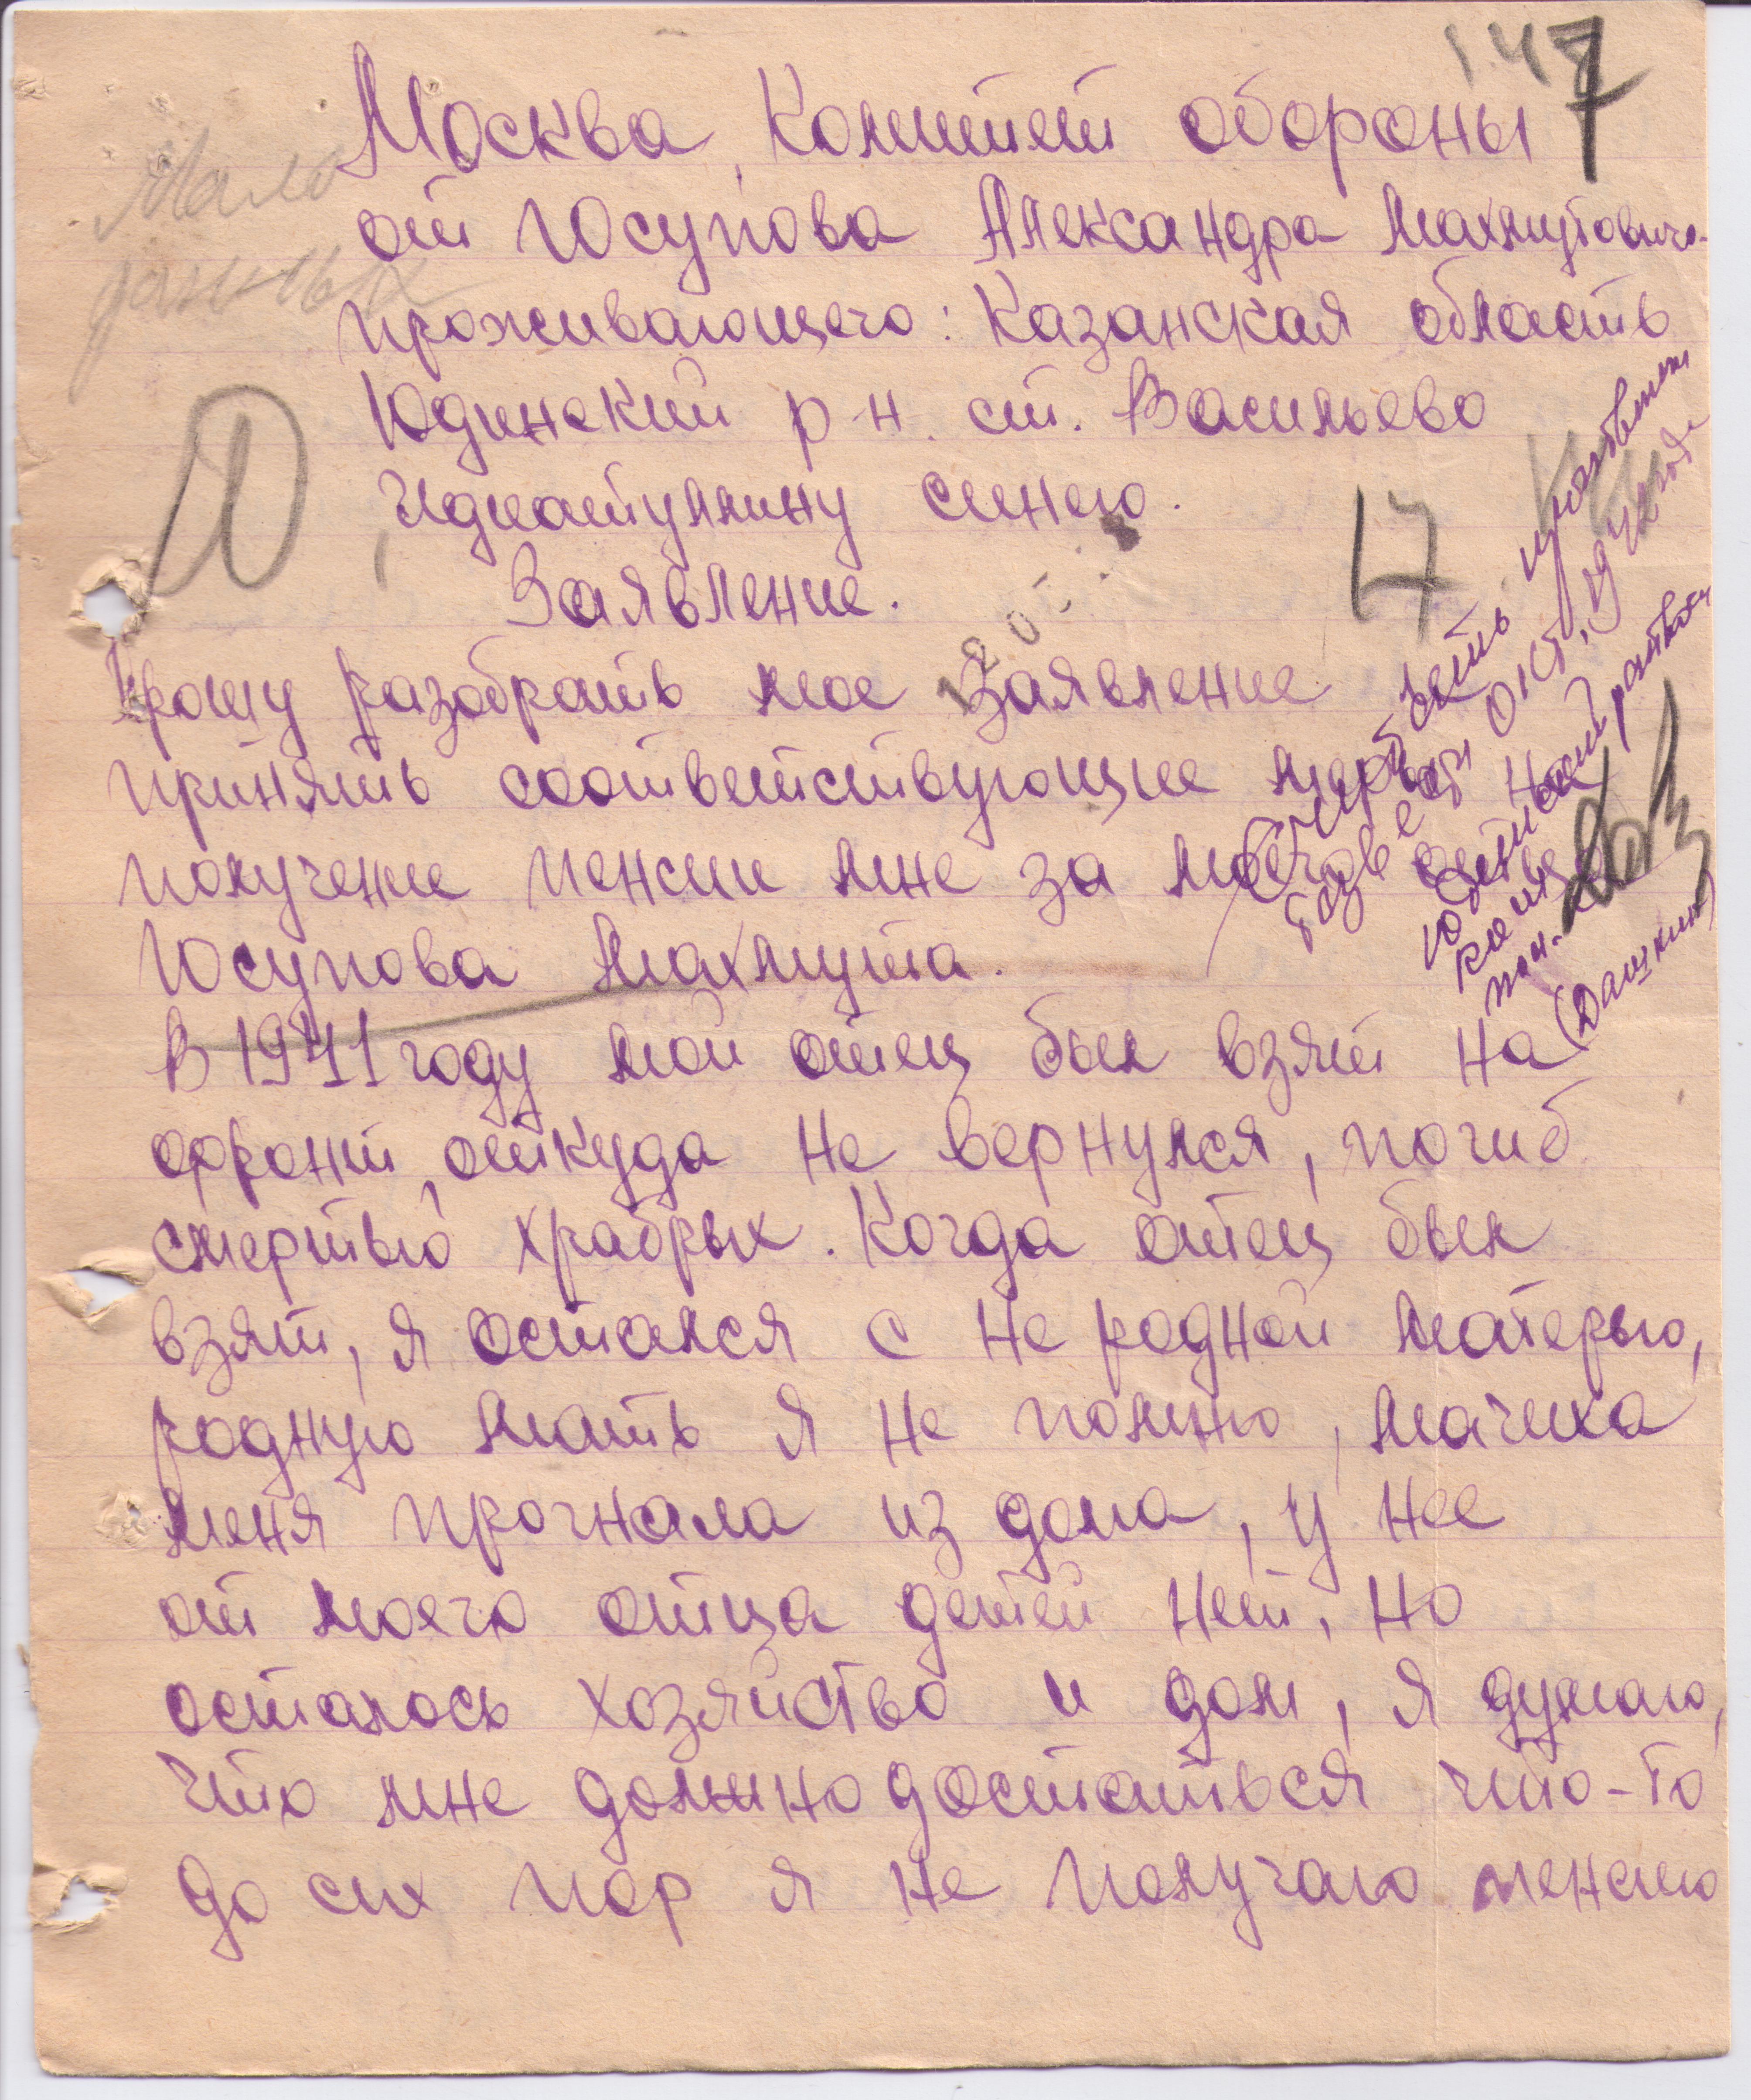 147
Москва, Комитет обороны
от Юсупова Александра Махмутовича
проживающего: Казанская область
Юдинский р-н. ст. Васильево
Идиатуллину синею.
Мало
данных
17
Заявление.
Прошу разобрать мое заявление
принять соответствующие меры на
получение пенсии мне за моего отца
Юсупова Махмута.
В 1941 году мой отец был взят на
фронт, откуда не вернулся, погиб
смертью храбрых. Когда отец был
взят, я остался с не родной матерью,
родную мать я не помню, мачиха
меня прогнала из дома, у нее
от моего отца детей нет, но
осталось хозяйство и дом, я думаю,
что мне должно достаться что-то
до сих пор я не получаю пенсию
(Дашкин)